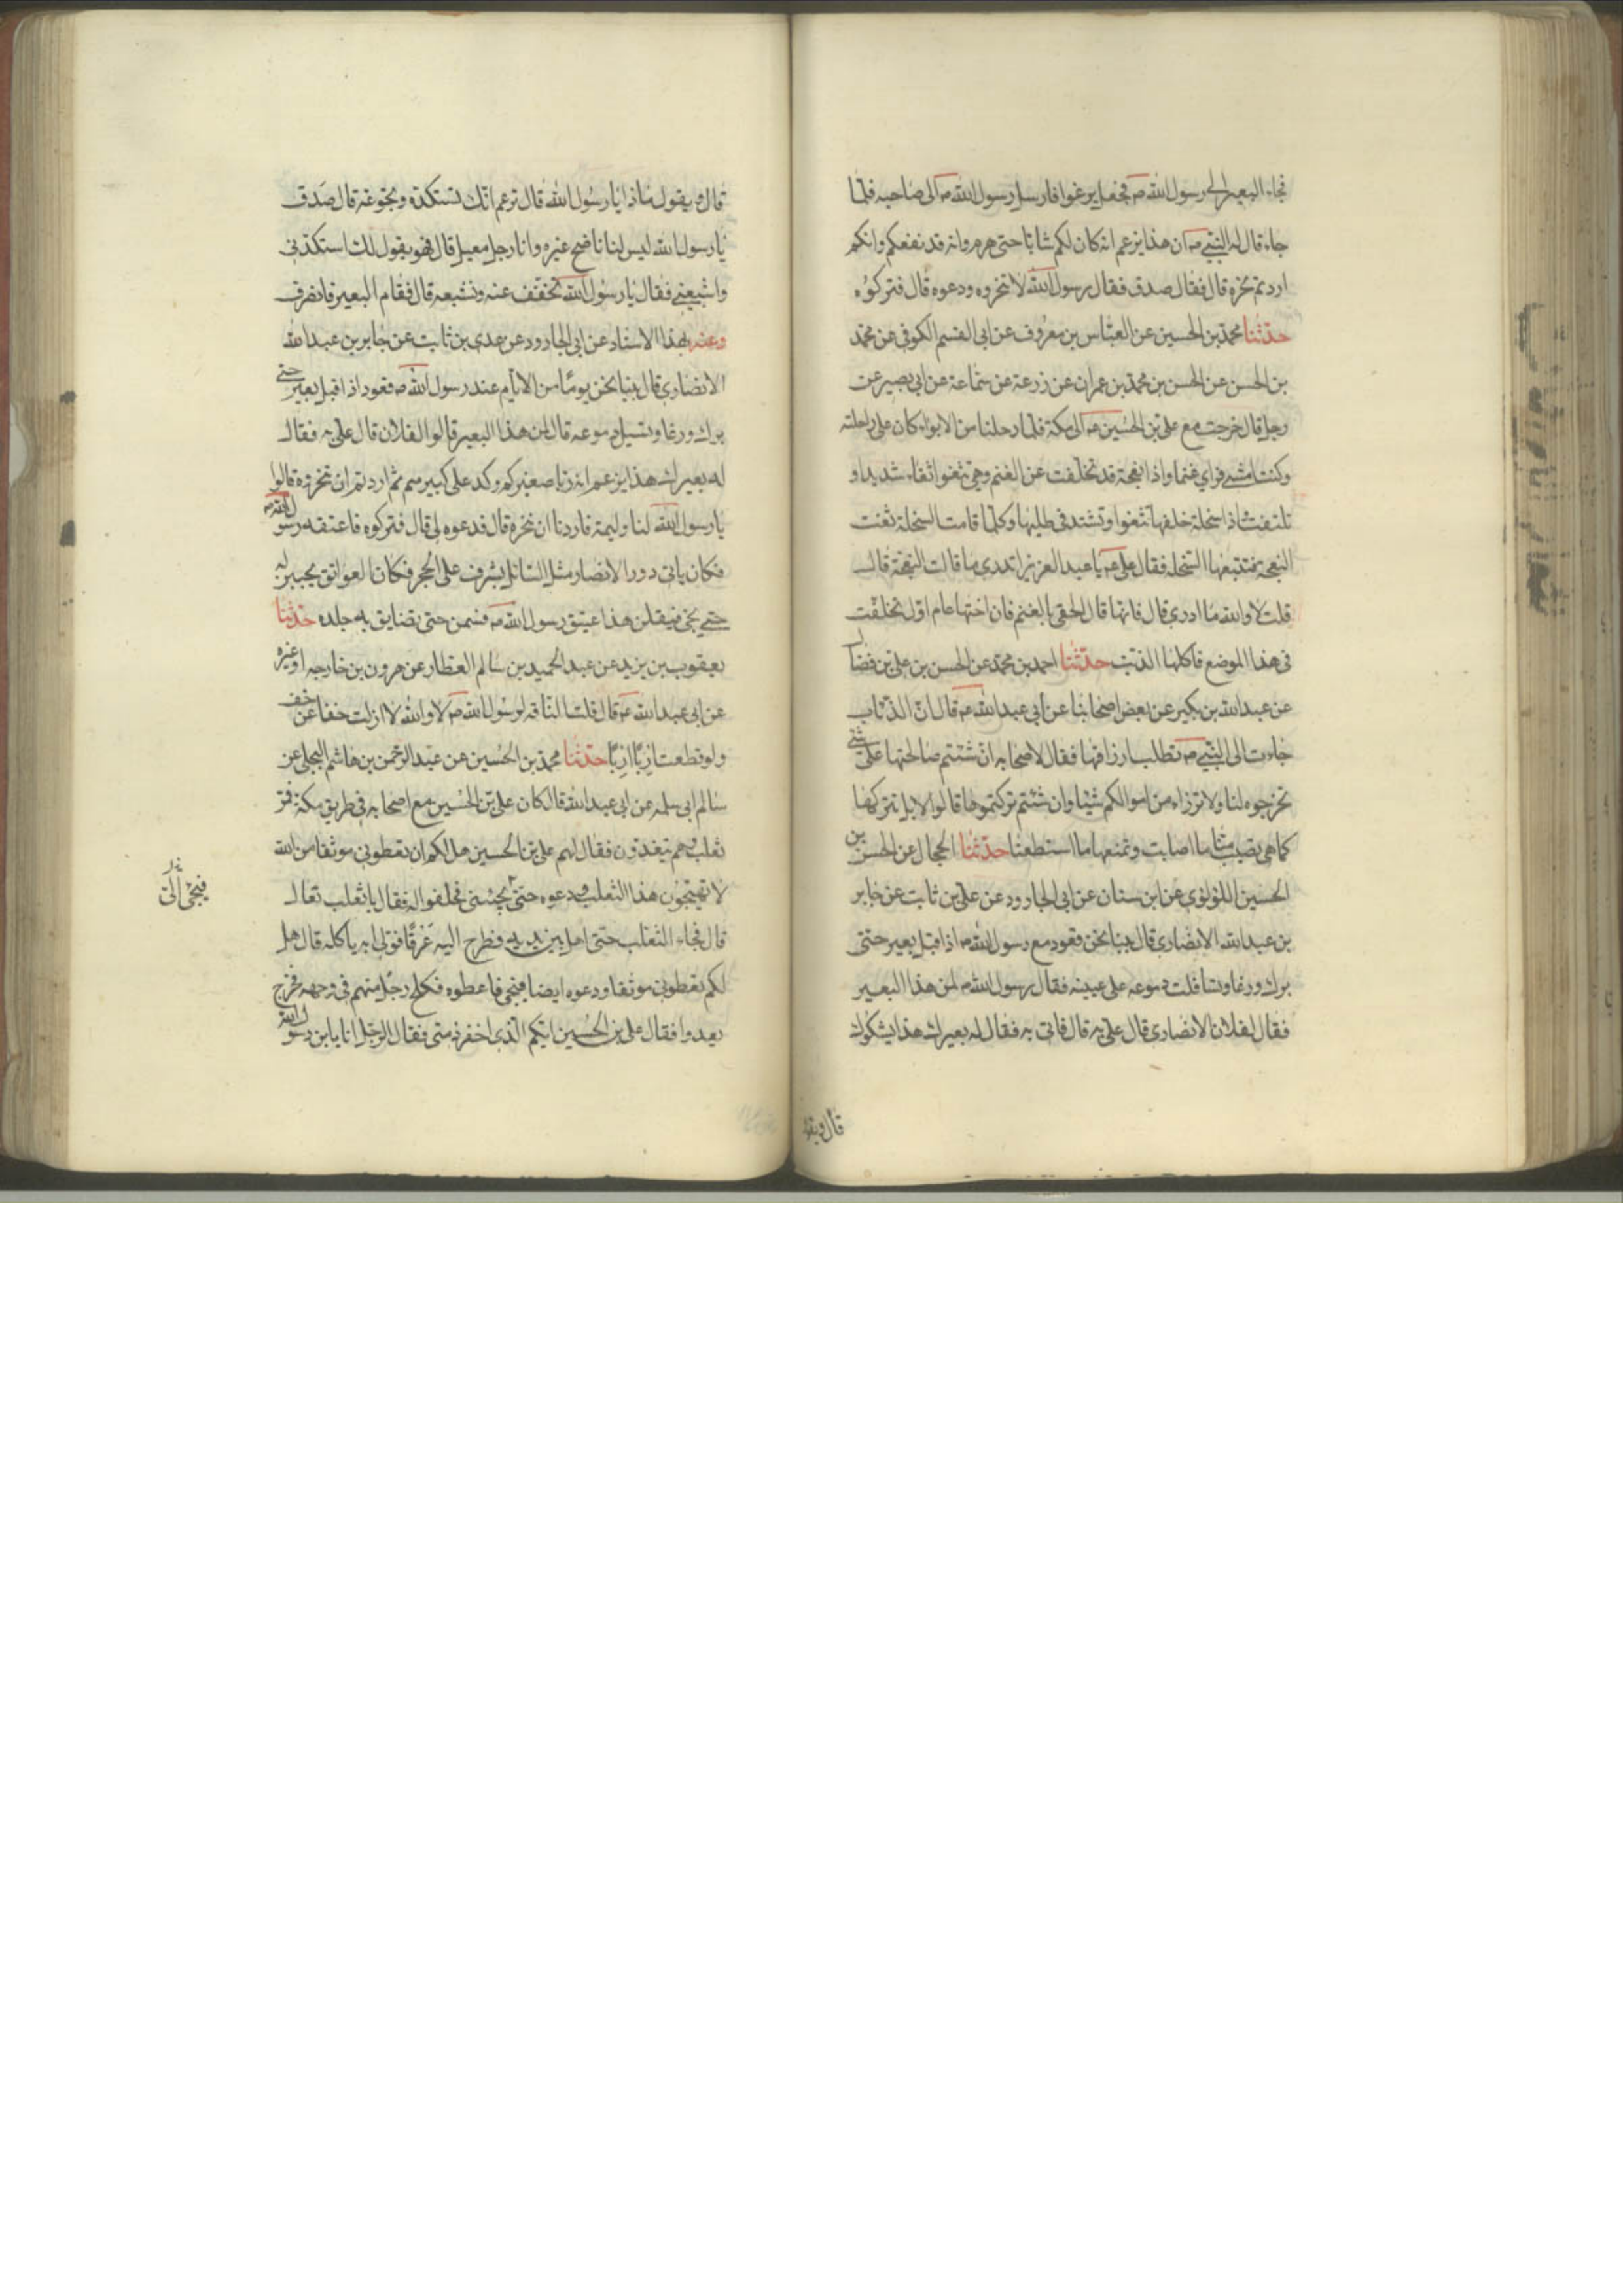 فجاء البعير الى رسول الله ص فجعل يرغوا فارسل رسول الله ص الى صاحبه فلما
جاء قال له النبي ص ان هذا يزعم انه كان لكم شابا حتى هرم وانه قد نفعكم وانكم
اردتم نحره قال فقال صدق فقال رسول الله لا تنحروه ودعوه قال فتركوه
حدثنا محمد بن الحسين عن العباس بن معروف عن ابى القسم الكوفى عن محمد
بن الحسن عن الحسن بن محمد بن عمران عن زرعة عن سماعة عن ابى بصير عن
رجل قال خرجت مع على بن الحسين ع الى مكة فلما رحلنا من الابواء كان على راحلته
وكنت امشى فراى غنما واذا نعجة قد تخلفت عن الغنم وهى تثغوا ثغاء شديدا و
تلتفت واذا سخلة خلفها تثغوا وتشتد فى طلبها وكلما قامت السخلة ثغت
النعجة فتتبعها السخلة فقال على ع يا عبد العزيز اتدرى ما قالت النعجة قال
قلت لا والله ما ادرى قال فانها قال الحقى بالغنم فان اختها عام اول تخلفت
فى هذا الموضع فاكلها الذئب حدثنا احمد بن محمد عن الحسن بن على بن فضال
عن عبد الله بن بكير عن بعض اصحابنا عن ابى عبد الله ع قال ان الذئاب
جاءت الى النبى ص تطلب ارزاقها فقال لاصحابه ان شئتم صالحتها على شئ
تخرجوه لنا ولا ترزاء من اموالكم شيئا وان شئتم تركتموها قالوا لا بل نتركها
كما هى تصيب منا ما اصابت ونمنعها ما استطعنا حدثنا الحجال عن الحسن بن
الحسين اللؤلؤى عن ابن سنان عن ابى الجارود عن على بن ثابت عن جابر
بن عبد الله الانصارى قال بينا نحن قعود مع رسول الله ص اذ اقبل بعير حتى
برك ورغا وتسافلت دموعه على عينيه فقال رسول الله ص لمن هذا البعير
فقال لفلان الانصارى قال على به قال فاتى به فقال له بعيرك هذا يشكوك
قال ويقو
قال ويقول ماذا يا رسول الله قال تزعم انك تستكده وتجوعه قال صدق
يا رسول الله ليس لنا ناضح غيره وانا رجل معيل قال فهو يقول لك استكدنى
واشبعنى فقال يا رسول الله نخفف عنه ونشبعه قال فقام البعير فانصرف
وعنه بهذا الاسناد عن ابى الجارود عن عدى بن ثابت عن جابر بن عبد الله
الانصارى قال بينا نحن يوما من الايام عند رسول الله ص قعود اذ اقبل بعير حتى
برك ورغا وتسيل دموعه قال لمن هذا البعير قالوا لفلان قال على به فقال
له بعيرك هذا يزعم انه ربا صغيركم وكد على كبيركم ثم اردتم ان تنحروه قالوا
يا رسول الله لنا وليمة فاردنا ان ننحره قال فدعوه لى قال فتركوه فاعتقه رسول الله ص
فكان ياتى دور الانصار مثل السائل يشرف على الحجر فكان العواتق يجبين له
حتى يجئ فيقلن هذا عتيق رسول الله ص فسمن حتى تضايق به جلده حدثنا
يعقوب بن يزيد عن عبد الحميد بن سالم العطار عن هرون بن خارجه او غيره
عن ابى عبد الله ع قال قلت الناقه لرسول الله ص لا والله لا ازلت خفا عن خف
ولو قطعت اربا اربا حدثنا محمد بن الحسين عن عبد الرحمن بن هاشم البجلى عن
سالم ابى سلمه عن ابى عبد الله قال كان على بن الحسين مع اصحابه فى طريق مكة فمر
ثعلب وهم يتغدون فقال لهم على بن الحسين هل لكم ان تعطونى موثقا من الله
لا تهيجون هذا الثعلب ودعوه حتى يجيئنى فحلفوا له فقال يا ثعلب تعال
قال فجاء الثعلب حتى اهل بين يديه فطرح اليه عرقا فولى به ياكله قال هل
لكم تعطونى موثقا ودعوه ايضا فيجئ فاعطوه فكلح رجل منهم فى وجهه فخرج
يعدوا فقال على بن الحسين ايكم الذى اخفر ذمتى فقال الرجل انا يا ابن رسول الله
فيجئ الى